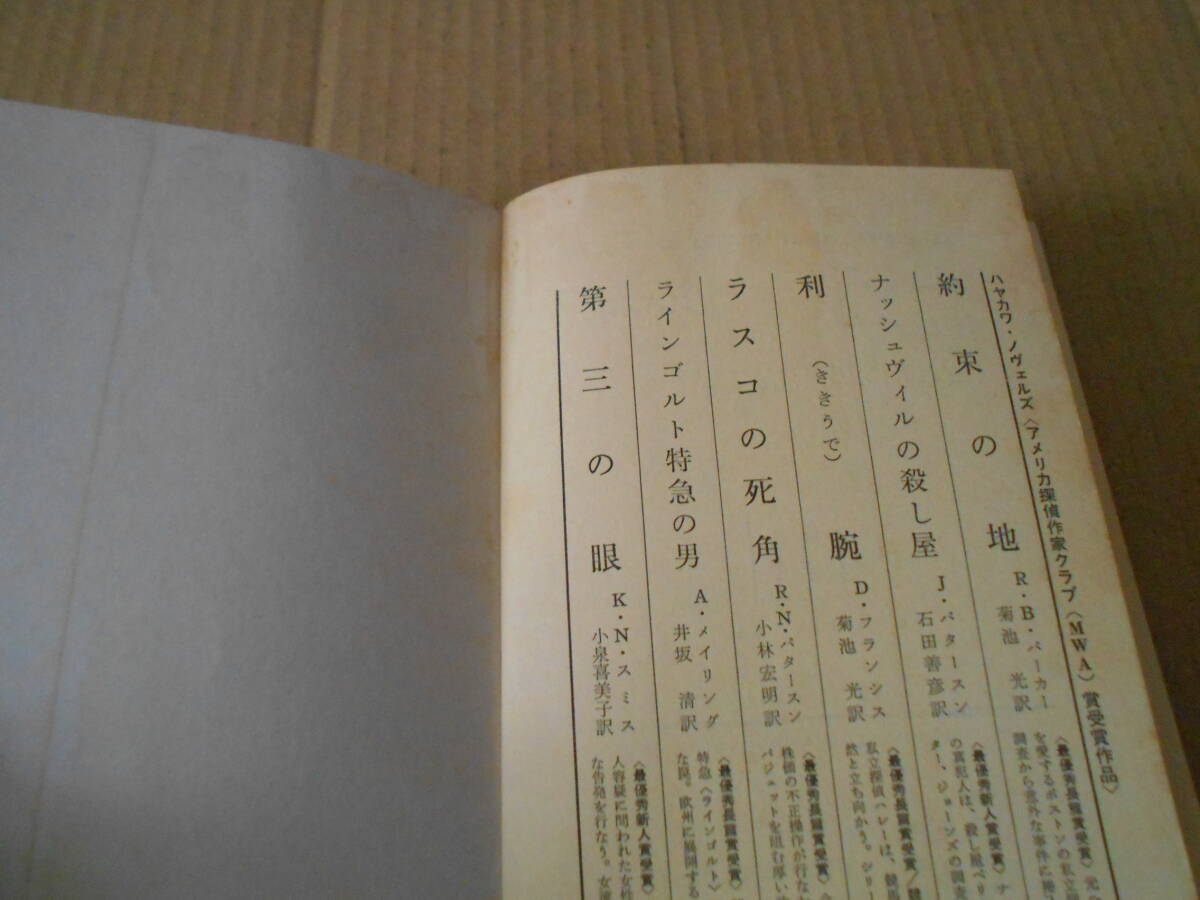 ハヤカワ・ノヴェルズ〈アメリカ探偵作家クラブ（MWA）賞受賞作品〉
約束の地
R・B・パーカー
菊池 光訳
〈最優秀長篇賞受賞〉元
を愛するボストンの私立
調査から意外な事件に
ナッシュヴィルの殺し屋
J・パタースン
石田善彦訳
〈最優秀新人賞受賞〉ナ
の真犯人は、殺し屋ベリ
ター、ジョーンズの調査
利腕
（ききうで）
D・フランシス
菊池 光訳
〈最優秀長篇賞受賞／
私立探偵ハレーは、競馬
然と立ち向かう。シリー
ラスコの死角
R・N・パタースン
小林宏明訳
〈最優秀長篇賞受賞〉
株価の不正操作が行な
パジェットを阻む厚い
ラインゴルト特急の男
A・メイリング
井坂 清訳
〈最優秀長篇賞受賞〉
特急〈ラインゴルト〉
な罠。欧州に展開する
第三の眼
K・N・スミス
小泉喜美子訳
〈最優秀新人賞受賞〉
人容疑に問われた女性
な告発を行なう。女